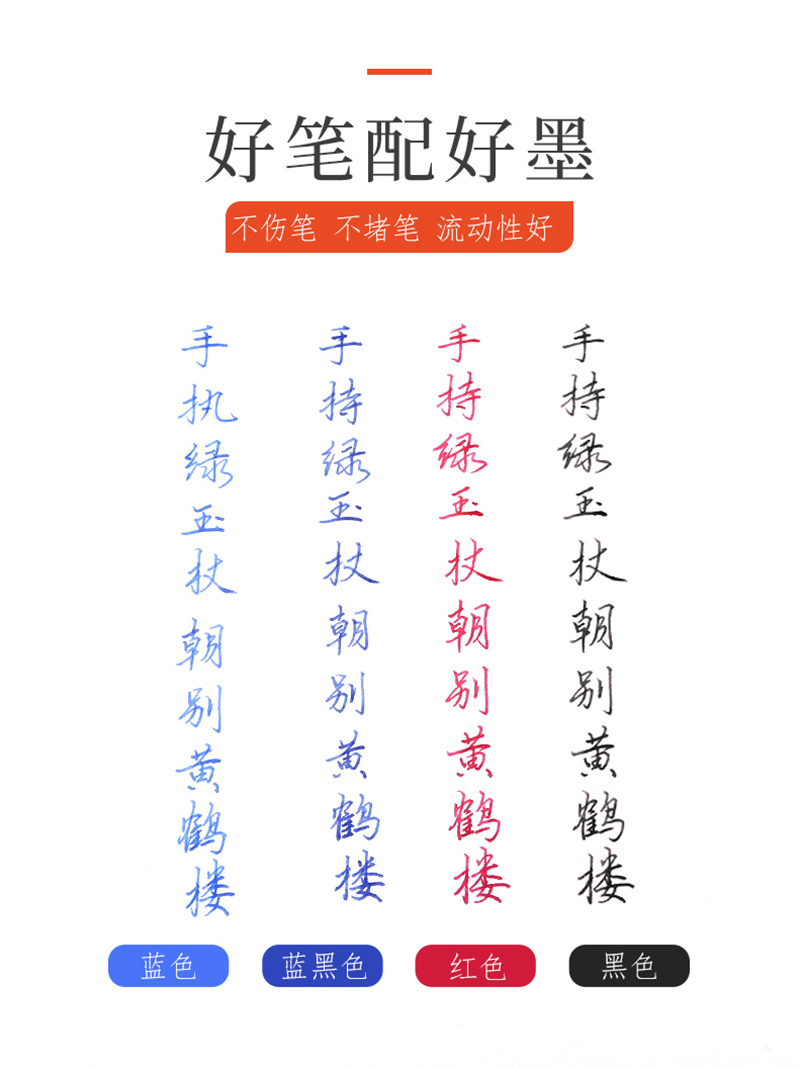 好笔配好墨
不伤笔 不堵笔 流动性好
手执绿玉杖朝别黄鹤楼
手持绿玉杖朝别黄鹤楼
手持绿玉杖朝别黄鹤楼
手持绿玉杖朝别黄鹤楼
蓝色
蓝黑色
红色
黑色